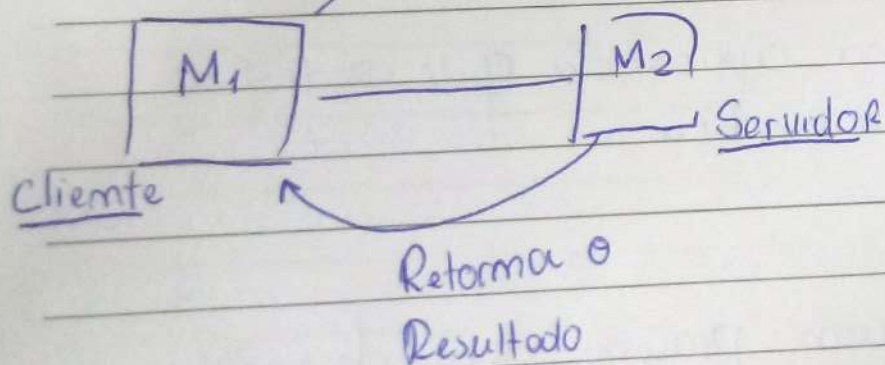 M1
M2
Servidor
Cliente
Retorna o
Resultado